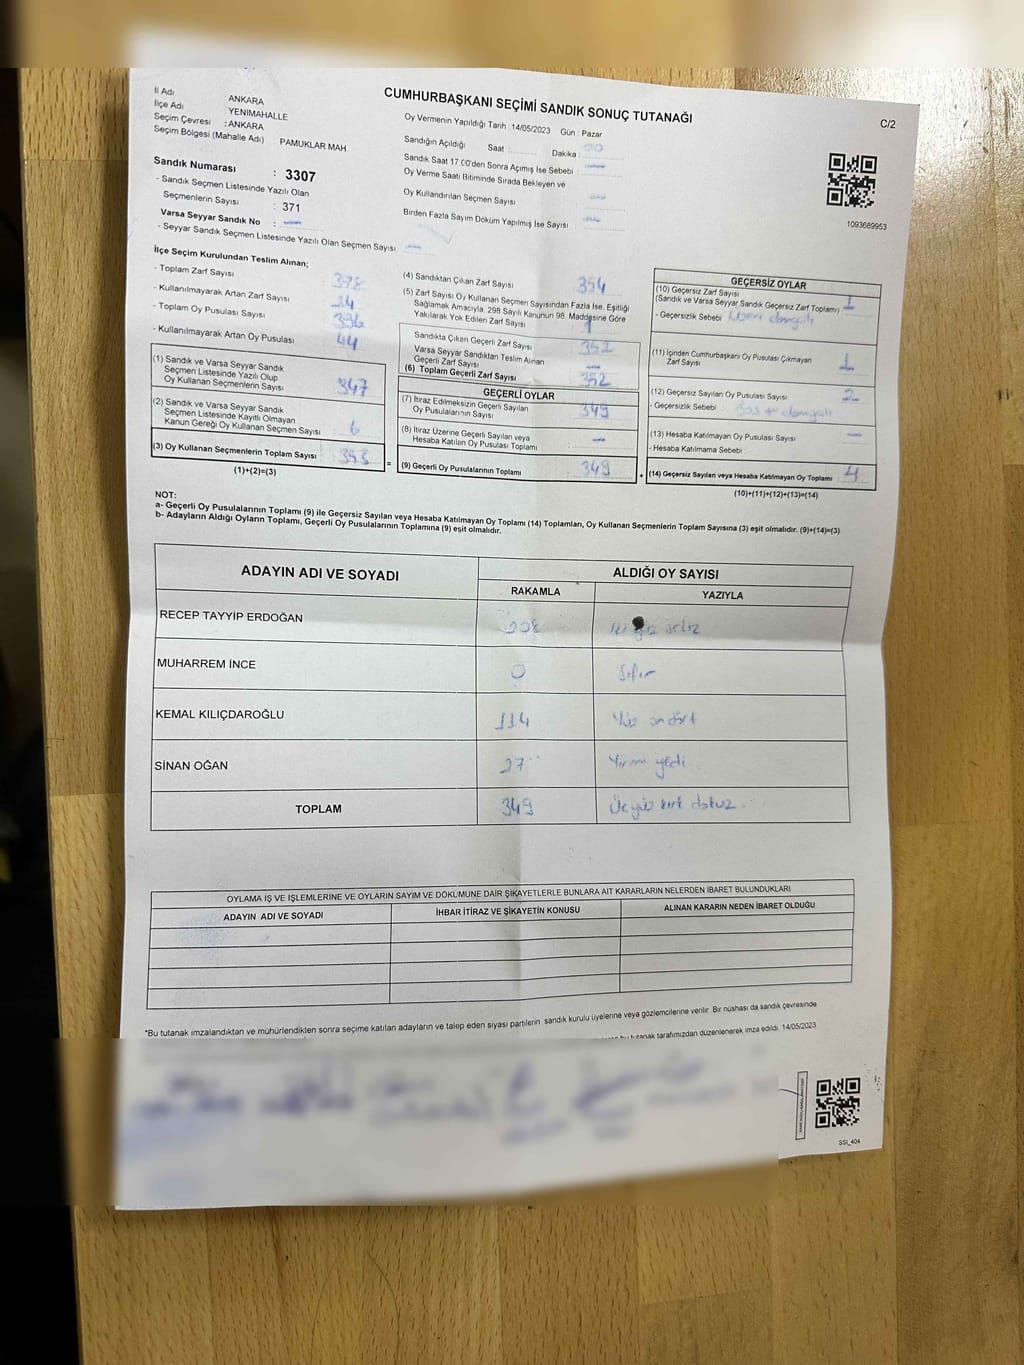 CUMHURBAŞKANI SEÇİMİ SANDIK SONUÇ TUTANAĞI
C/2
İl Adı : ANKARA
İlçe Adı : YENİMAHALLE
Seçim Çevresi : ANKARA
Seçim Bölgesi (Mahalle Adı) PAMUKLAR MAH.
Sandık Numarası : 3307
- Sandık Seçmen Listesinde Yazılı Olan
Seçmenlerin Sayısı : 371
Varsa Seyyar Sandık No : —
- Seyyar Sandık Seçmen Listesinde Yazılı Olan Seçmen Sayısı —
Oy Vermenin Yapıldığı Tarih :14/05/2023 Gün : Pazar
Sandığın Açıldığı Saat Dakika : 00
Sandık Saat 17.00'den Sonra Açımış İse Sebebi : —
Oy Verme Saati Bitiminde Sırada Bekleyen ve
Oy Kullandırılan Seçmen Sayısı —
Birden Fazla Sayım Döküm Yapılmış İse Sayısı —
1093689953
İlçe Seçim Kurulundan Teslim Alınan;
- Toplam Zarf Sayısı 378
- Kullanılmayarak Artan Zarf Sayısı 24
- Toplam Oy Pusulası Sayısı 396
- Kullanılmayarak Artan Oy Pusulası 44
(1) Sandık ve Varsa Seyyar Sandık
Seçmen Listesinde Yazılı Olup
Oy Kullanan Seçmenlerin Sayısı 347
(2) Sandık ve Varsa Seyyar Sandık
Seçmen Listesinde Kayıtlı Olmayan
Kanun Gereği Oy Kullanan Seçmen Sayısı 6
(3) Oy Kullanan Seçmenlerin Toplam Sayısı 353
(1)+(2)=(3)
(4) Sandıktan Çıkan Zarf Sayısı 354
(5) Zarf Sayısı Oy Kullanan Seçmen Sayısından Fazla İse, Eşitliği
Sağlamak Amacıyla, 298 Sayılı Kanunun 98. Maddesine Göre
Yakılarak Yok Edilen Zarf Sayısı 1
Sandıkta Çıkan Geçerli Zarf Sayısı 352
Varsa Seyyar Sandıktan Teslim Alınan
Geçerli Zarf Sayısı —
(6) Toplam Geçerli Zarf Sayısı 352
GEÇERLİ OYLAR
(7) İtiraz Edilmeksizin Geçerli Sayılan
Oy Pusulalarının Sayısı 349
(8) İtiraz Üzerine Geçerli Sayılan veya
Hesaba Katılan Oy Pusulası Toplamı —
= (9) Geçerli Oy Pusulalarının Toplamı 349
GEÇERSİZ OYLAR
(10) Geçersiz Zarf Sayısı
(Sandık ve Varsa Seyyar Sandık Geçersiz Zarf Toplamı) 1
- Geçersizlik Sebebi damgalı
(11) İçinden Cumhurbaşkanı Oy Pusulası Çıkmayan
Zarf Sayısı 1
(12) Geçersiz Sayılan Oy Pusulası Sayısı 2
- Geçersizlik Sebebi
(13) Hesaba Katılmayan Oy Pusulası Sayısı —
- Hesaba Katılmama Sebebi
+ (14) Geçersiz Sayılan veya Hesaba Katılmayan Oy Toplamı 4
(10)+(11)+(12)+(13)=(14)
NOT:
a- Geçerli Oy Pusulalarının Toplamı (9) ile Geçersiz Sayılan veya Hesaba Katılmayan Oy Toplamı (14) Toplamları, Oy Kullanan Seçmenlerin Toplam Sayısına (3) eşit olmalıdır. (9)+(14)=(3)
b- Adayların Aldığı Oyların Toplamı, Geçerli Oy Pusulalarının Toplamına (9) eşit olmalıdır.
ADAYIN ADI VE SOYADI ALDIĞI OY SAYISI
RAKAMLA YAZIYLA
RECEP TAYYİP ERDOĞAN 208 iki yüz sekiz
MUHARREM İNCE 0 Sıfır
KEMAL KILIÇDAROĞLU 114 Yüz ondört
SİNAN OĞAN 27 Yirmi yedi
TOPLAM 349 Üçyüz kırk dokuz
OYLAMA İŞ VE İŞLEMLERİNE VE OYLARIN SAYIM VE DÖKÜMÜNE DAİR ŞİKAYETLERLE BUNLARA AİT KARARLARIN NELERDEN İBARET BULUNDUKLARI
ADAYIN ADI VE SOYADI İHBAR İTİRAZ VE ŞİKAYETİN KONUSU ALINAN KARARIN NEDEN İBARET OLDUĞU
*Bu tutanak imzalandıktan ve mühürlendikten sonra seçime katılan adayların ve talep eden siyasi partilerin sandık kurulu üyelerine veya gözlemcilerine verilir. Bir nüshası da sandık çevresinde
bu tutanak tarafımızdan düzenlenerek imza edildi. 14/05/2023
SSI_404